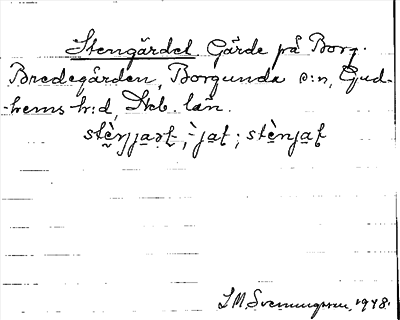 Stengärdet Gärde på Borg.
Bredegården, Borgunda s:n, Gud-
-hems h:d, län.
stènjaṛt, -jat; stènjat
Svenungsson, 1948.